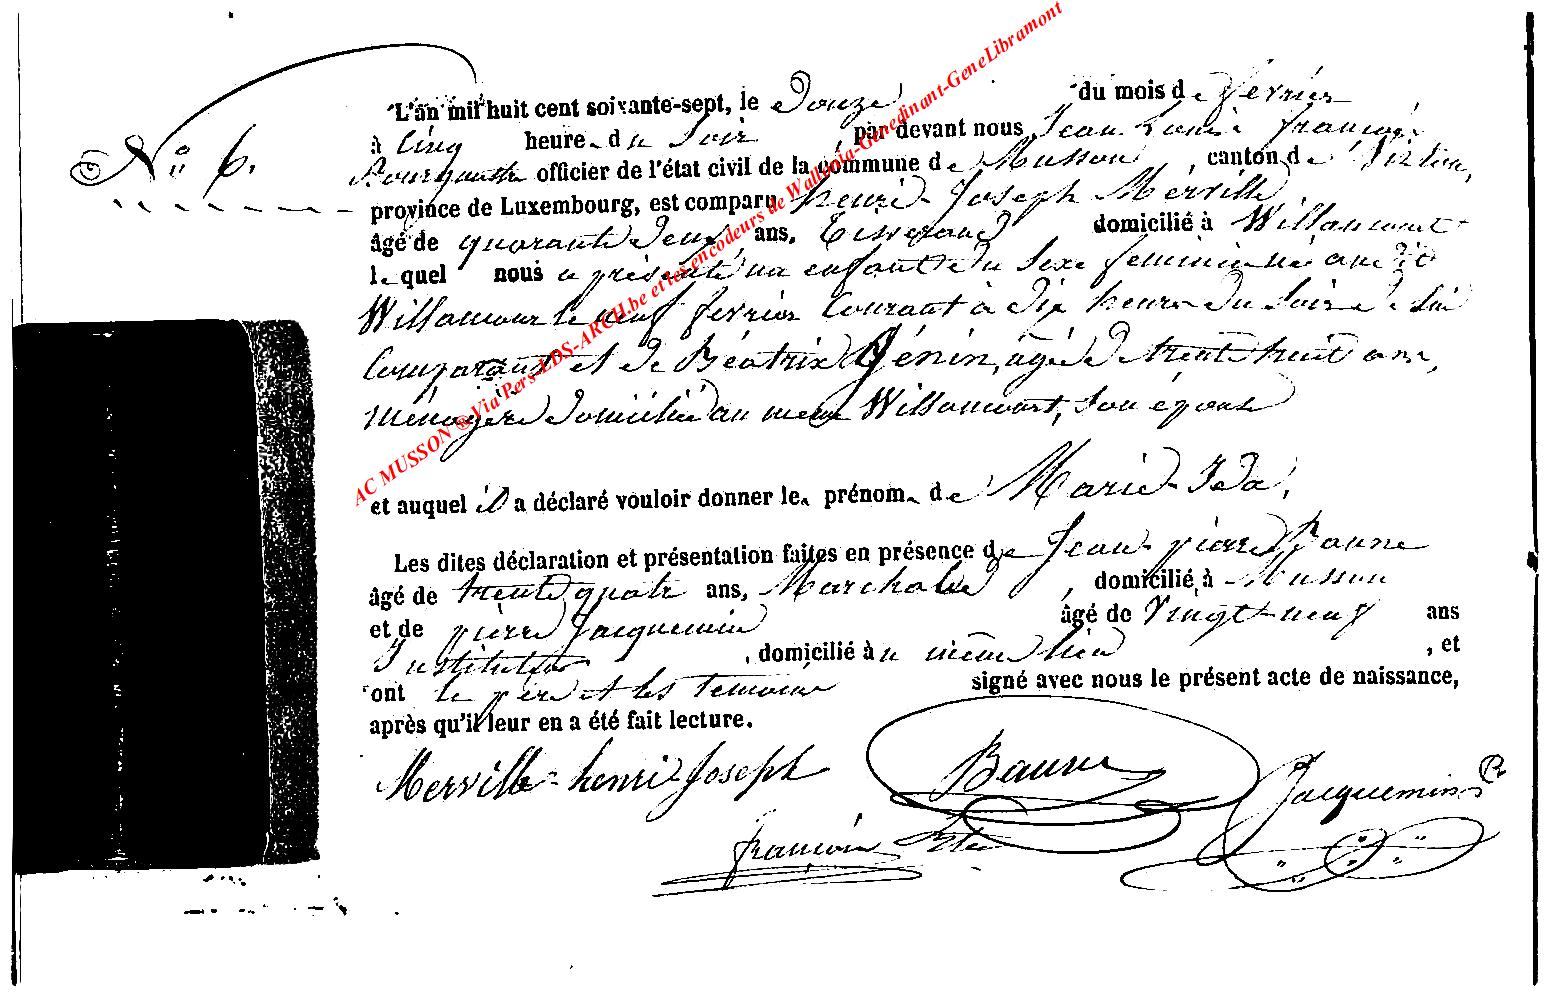 L'an mil huit cent soixante-sept, le Douze du mois de février
à Cinq heure du Soir par devant nous Jean Louis françois
N° 6. officier de l'état civil de la commune de Musson, canton de Virton,
province de Luxembourg, est comparu henri Joseph Merville
âgé de quarante deux ans, Tisserand domicilié à Willancourt
lequel nous a présenté un enfant du Sexe feminin née au dit
Willancourt le neuf fevrier Courant à dix heures du Soir de lui
Comparant et de Béatrix Génin, agée de trente huit ans,
Ménagère domiciliée au meme Willancourt, son épouse
et auquel il a déclaré vouloir donner le prénom de Marie-Ida,
Les dites déclaration et présentation faites en présence de Jean pierre Baune
âgé de trente quatre ans, domicilié à Musson
et de pierre Jacquemin âgé de Vingt-neuf ans
Instituteur, domicilié au même lieu, et
ont le père et les temoins signé avec nous le présent acte de naissance,
après qu'il leur en a été fait lecture.
Merville henri Joseph Baune Jacquemin P
françois
AC MUSSON ® Via Pers-LDS-ARCH.be et les encodeurs de Wallonia-Genedinant-GeneLibramont